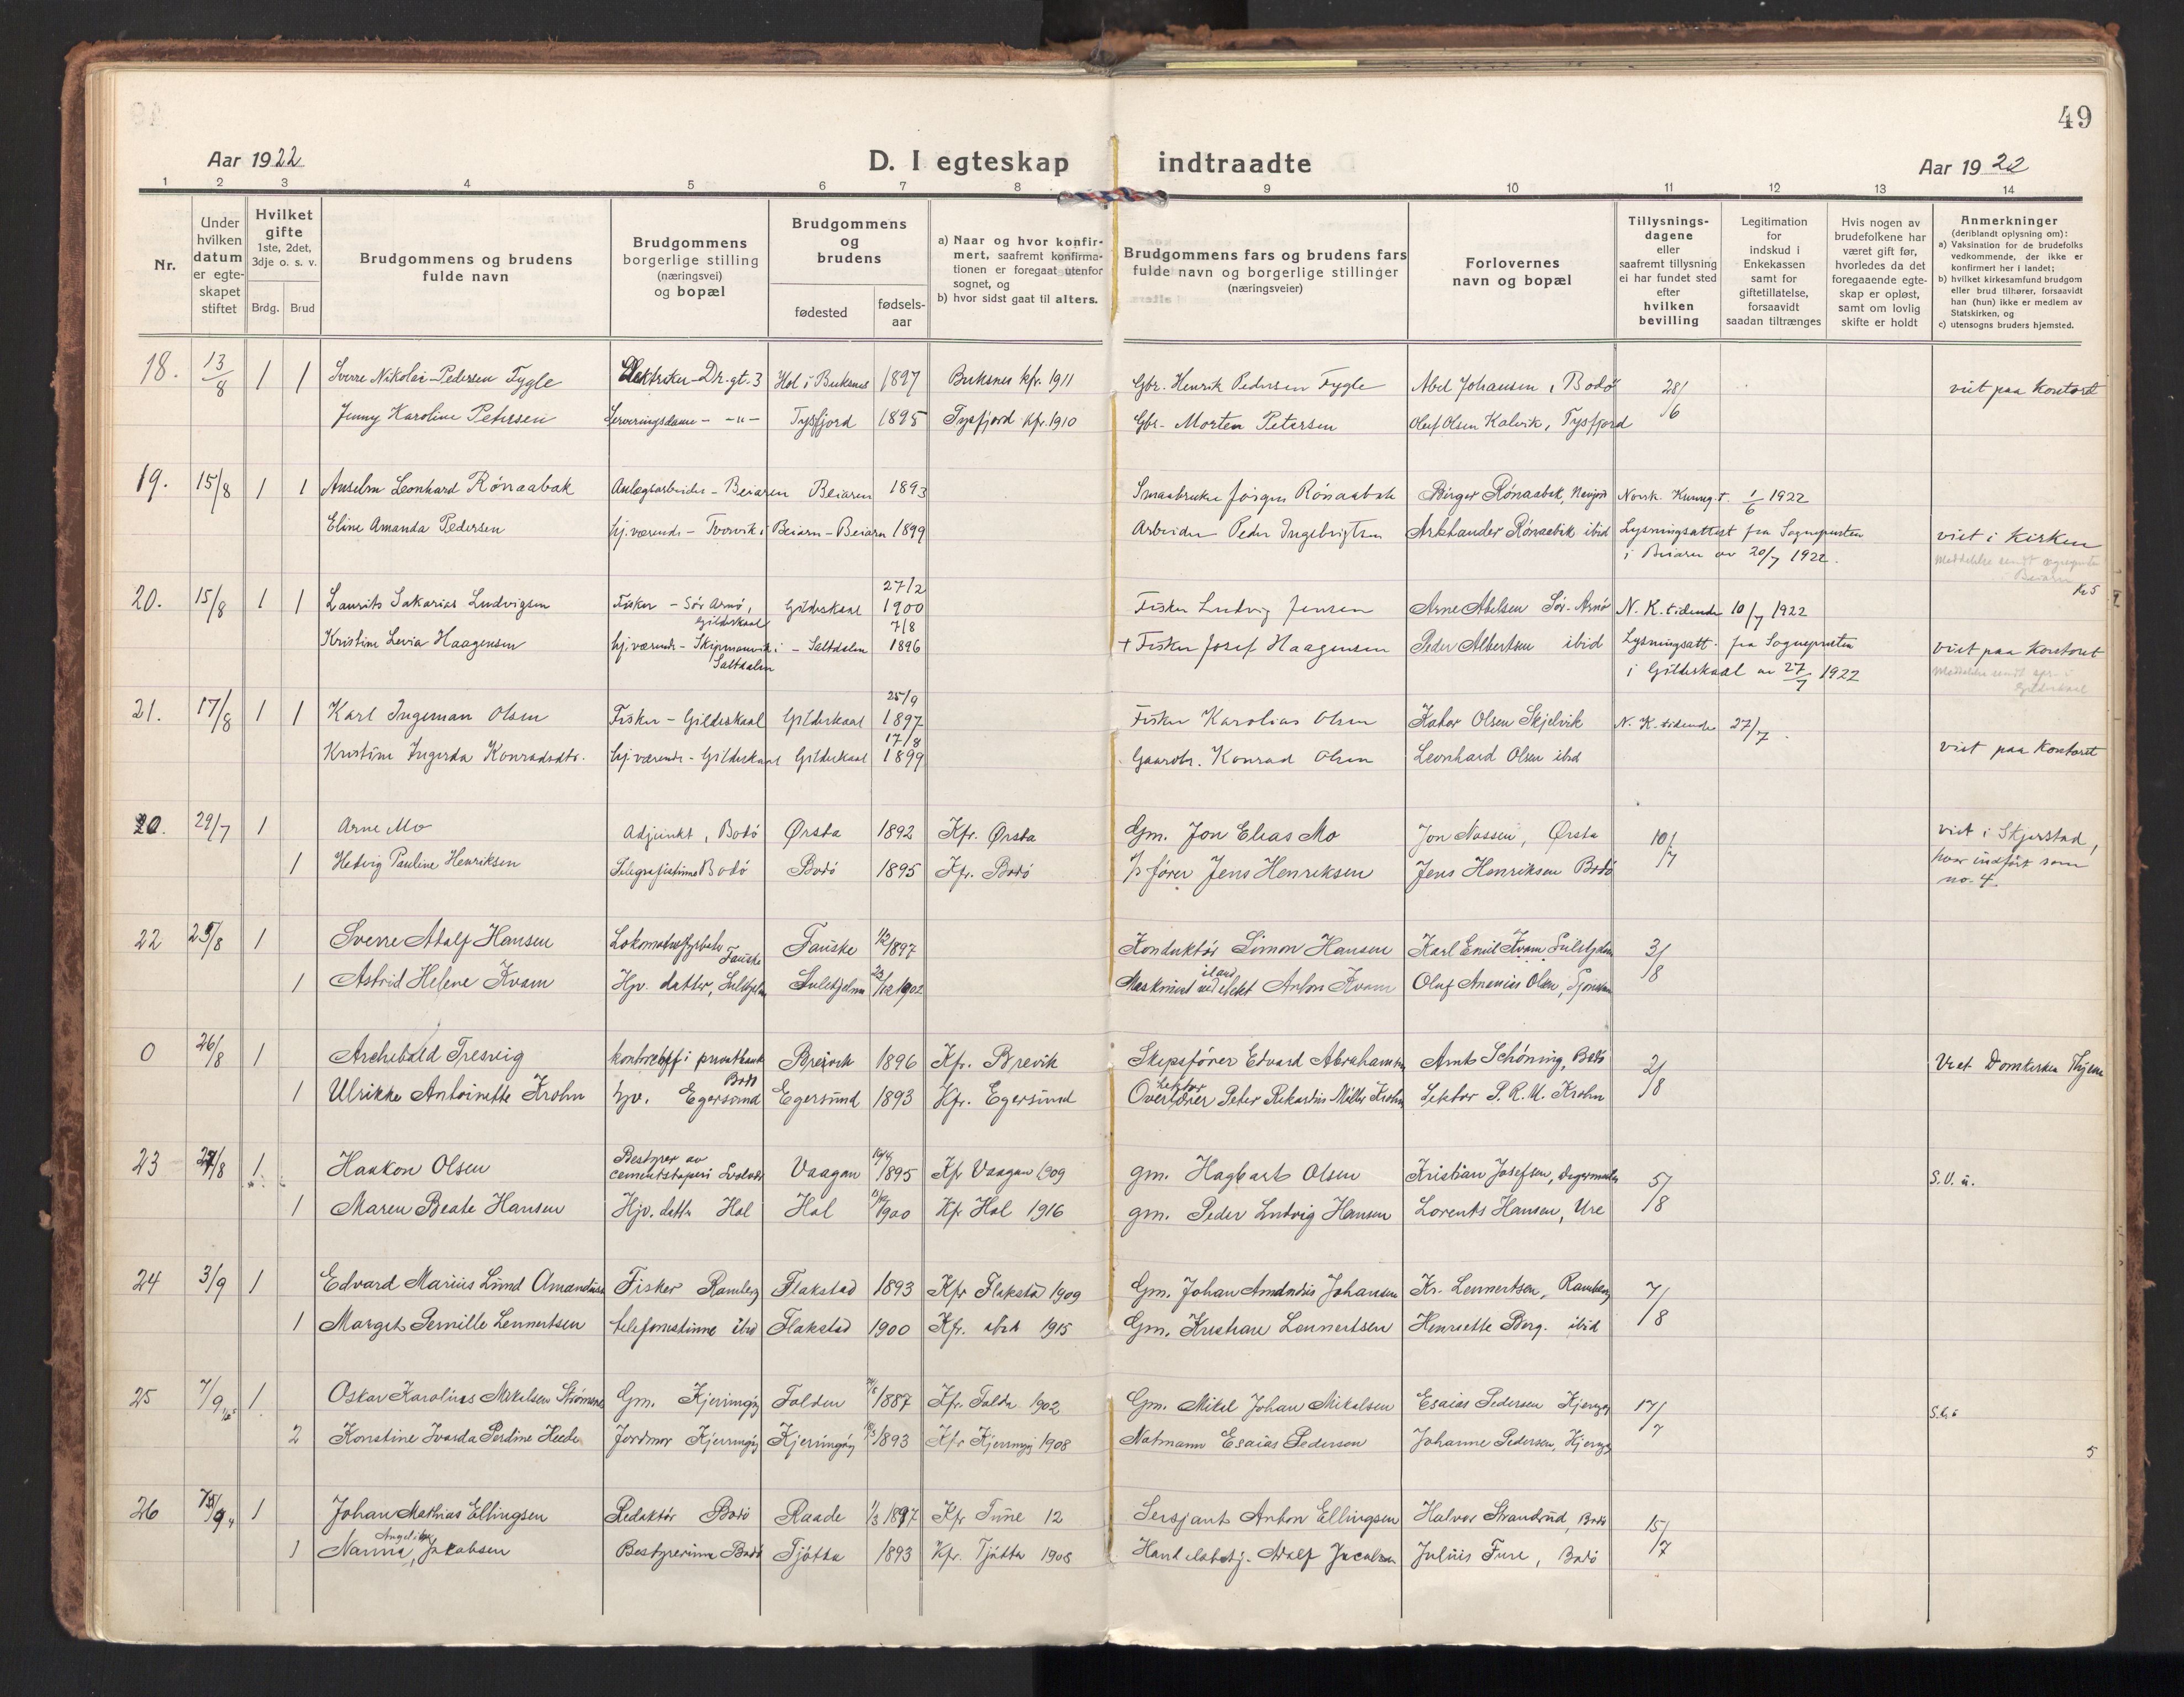 49
Aar 1922
D. I egteskap indtraadte
Aar 1922
1 2 3 4 5 6 7 8 9 10 11 12 13 14
Nr.
Under hvilken datum er egteskapet stiftet
Hvilket gifte 1ste, 2det, 3dje o. s. v.
Brdg. Brud
Brudgommens og brudens fulde navn
Brudgommens borgerlige stilling (næringsvei) og bopæl
Brudgommens og brudens
fødested
fødselsaar
a) Naar og hvor konfirmert, saafremt konfirmationen er foregaat utenfor sognet, og
b) hvor sidst gaat til alters.
Brudgommens fars og brudens fars fulde navn og borgerlige stillinger (næringsveier)
Forlovernes navn og bopæl
Tillysningsdagene eller saafremt tillysning ei har fundet sted efter hvilken bevilling
Legitimation for indskud i Enkekassen samt for giftetillatelse, forsaavidt saadan tiltrænges
Hvis nogen av brudefolkene har været gift før, hvorledes da det foregaaende egteskap er opløst, samt om lovlig skifte er holdt
Anmerkninger (deriblandt oplysning om):
a) Vaksination for de brudefolks vedkommende, der ikke er konfirmert her i landet;
b) hvilket kirkesamfund brudgom eller brud tilhører, forsaavidt han (hun) ikke er medlem av Statskirken, og
c) utensogns bruders hjemsted.
18. 13/8 1 1 Sverre Nikolai Pedersen Fygle Elektriker - Dr.gt. 3 Hol i Buksnes 1897 Buksnes kfr. 1911 Gbr. Henrik Pedersen Fygle Abel Johansen, Bodø 28/6 viet paa kontoret
Jenny Karoline Petersen Serveringsdame - -"- Tysfjord 1895 Tysfjord kfr. 1910 Gbr. Morten Petersen Oluf Olsen Kalvik, Tysfjord
19. 15/8 1 1 Anselm Leonhard Rønaabak Anlægsarbeider - Beiaren Beiaren 1893 Smaabruker Jørgen Rønaabak Birger Rønaabak, Norsk Kunng.t. 1/6 1922
Eline Amanda Pedersen hj. værende - Tvervik i Beiarn - Beiarn 1899 Arbeider Peder Ingebrigtsen Rønaabak ibid Lysningsattest fra Sognepresten viet i Kirken
i Beiaren av 20/7 1922.
20. 15/8 1 1 Laurits Sakarias Ludvigsen Fisker - Sør Arnø, Gildeskaal Gildeskaal 27/2 1900 Fisker Ludvig Jensen Arne Abelsen Sør-Arnø N. K. tidende 10/7 1922
Kristine Levia Haagensen hj. værende - Skipmanvik i Saltdalen - Saltdalen 7/8 1896 + Fisker Josef Haagensen Peder Albertsen ibid Lysningsatt. fra Sognepresten viet paa kontoret
i Gildeskaal av 27/7 1922
21. 17/8 1 1 Karl Ingeman Olsen Fisker - Gildeskaal Gildeskaal 25/9 1897 Fisker Karolius Olsen Olsen Skjelvik N. K. tidende 27/7.
Kristine Ingerda Konradsdtr. hj. værende - Gildeskaal Gildeskaal 17/8 1899 Gaardbr. Konrad Olsen Leonhard Olsen ibid viet paa kontoret
20. 29/7 1 Arne Mo Adjunkt, Bodø Ørsta 1892 Kfr. Ørsta Gm. Jon Elias Mo Jon Nassen, Ørsta 10/7 viet i Skjerstad,
1 Hedvig Pauline Henriksen Telegrafistinne Bodø Bodø 1895 Kfr. Bodø fører Jens Henriksen Jens Henriksen Bodø hvor indført som no. 4
22 25/8 1 Sverre Adolf Hansen Fauske Fauske 1/2 1897 Konduktør Simon Hansen Karl Emil Kvam Sulitjelma 3/8
1 Astrid Helene Kvam Hjv. datter, Sulitjelma Sulitjelma 1902 Anton Kvam Oluf Ananias Olsen,
0 26/8 1 Archebald Tresvig i privatbank Bodø Brevik 1896 Kfr. Brevik Skipsfører Edvard Abrahamsen Arnt Schöning, Bodø 2/8 Viet Domkirken
1 Ulrikke Antoinette Krohn hjv. Egersund Egersund 1893 Kfr. Egersund Lektor Peter Rikardus Møller Krohn Lektor P. R. M. Krohn
23 27/8 1 Haakon Olsen Bestyrer av cementstøperi Svolvær Vaagan 1895 Kfr Vaagan 1909 gm. Hagbart Olsen Kristian Josefsen, Digermulen 5/8 S. V. u.
1 Maren Beate Hansen Hjv. datter Hol Hol 1900 Kfr Hol 1916 gm. Peder Ludvig Hansen Lorents Hansen, Ure
24 3/9 1 Edvard Marius Lund Amandius Fisker Ramberg Flakstad 1893 Kfr Flakstad 1909 Gm. Johan Amandius Johansen Kr. Lennertsen, Ramberg 7/8
1 Margit Pernille Lennertsen telefonistinne ibid Flakstad 1900 Kfr. ibid 1915 Gm. Kristian Lennertsen Henriette Berg. ibid
25 7/9 1 Oskar Karolius Mikelsen Gm. Kjerringøy Folden 1887 Kfr. Folda 1902 Gm. Mikal Johan Mikalsen Esaias Pedersen Kjerringøy 17/7
2 Konstine Ivarda Perdine Heide Jordmor Kjerringøy Kjerringøy 1893 Kfr Kjerringøy 1908 Notmann Esaias Pedersen Johanne Pedersen, Kjerringøy 5
26 1 Johan Mathias Ellingsen Redaktør Bodø Raade 1/3 1897 Kfr Tune 12 Sersjant Anton Ellingsen Halvor Strandrud, Bodø 15/7
1 Nanna Angelika Jakobsen Bestyrerinne Bodø Tjøtta 1893 Kfr. Tjøtta 1908 Handelsbetj. Adolf Jacobsen Julius Fure, Bodø